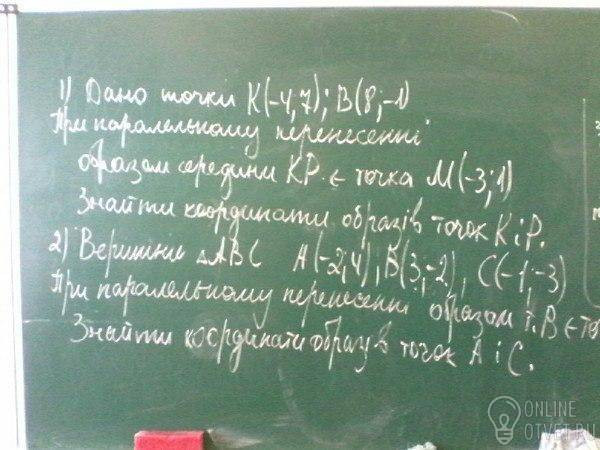 1) Дано точки K(-4,7); B(8;-1)
При паралельному перенесенні
образом середини KP. є точка M(-3;1)
Знайти координати образів точок K і P.
2) Вершини △ABC A(-2;4), B(3;-2), C(-1;-3)
При паралельному перенесенні образом т. B є то
Знайти координати образ в точок A і C.
ONLINE
OTVET.RU